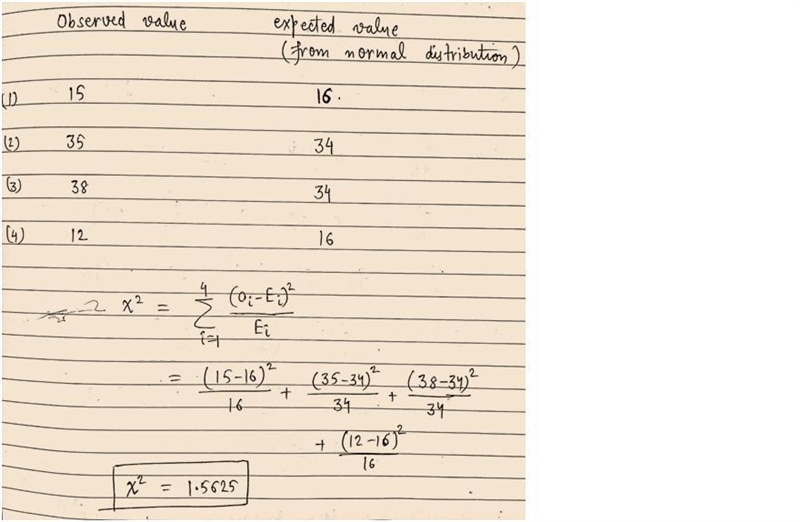 Observed value expected value
(from normal distribution)
(1) 15 16.
(2) 35 34
(3) 38 34
(4) 12 16
χ² = 4∑i=1 (Oi-Ei)²/Ei
= (15-16)²/16 + (35-34)²/34 + (38-34)²/34
+ (12-16)²/16
χ² = 1.5625